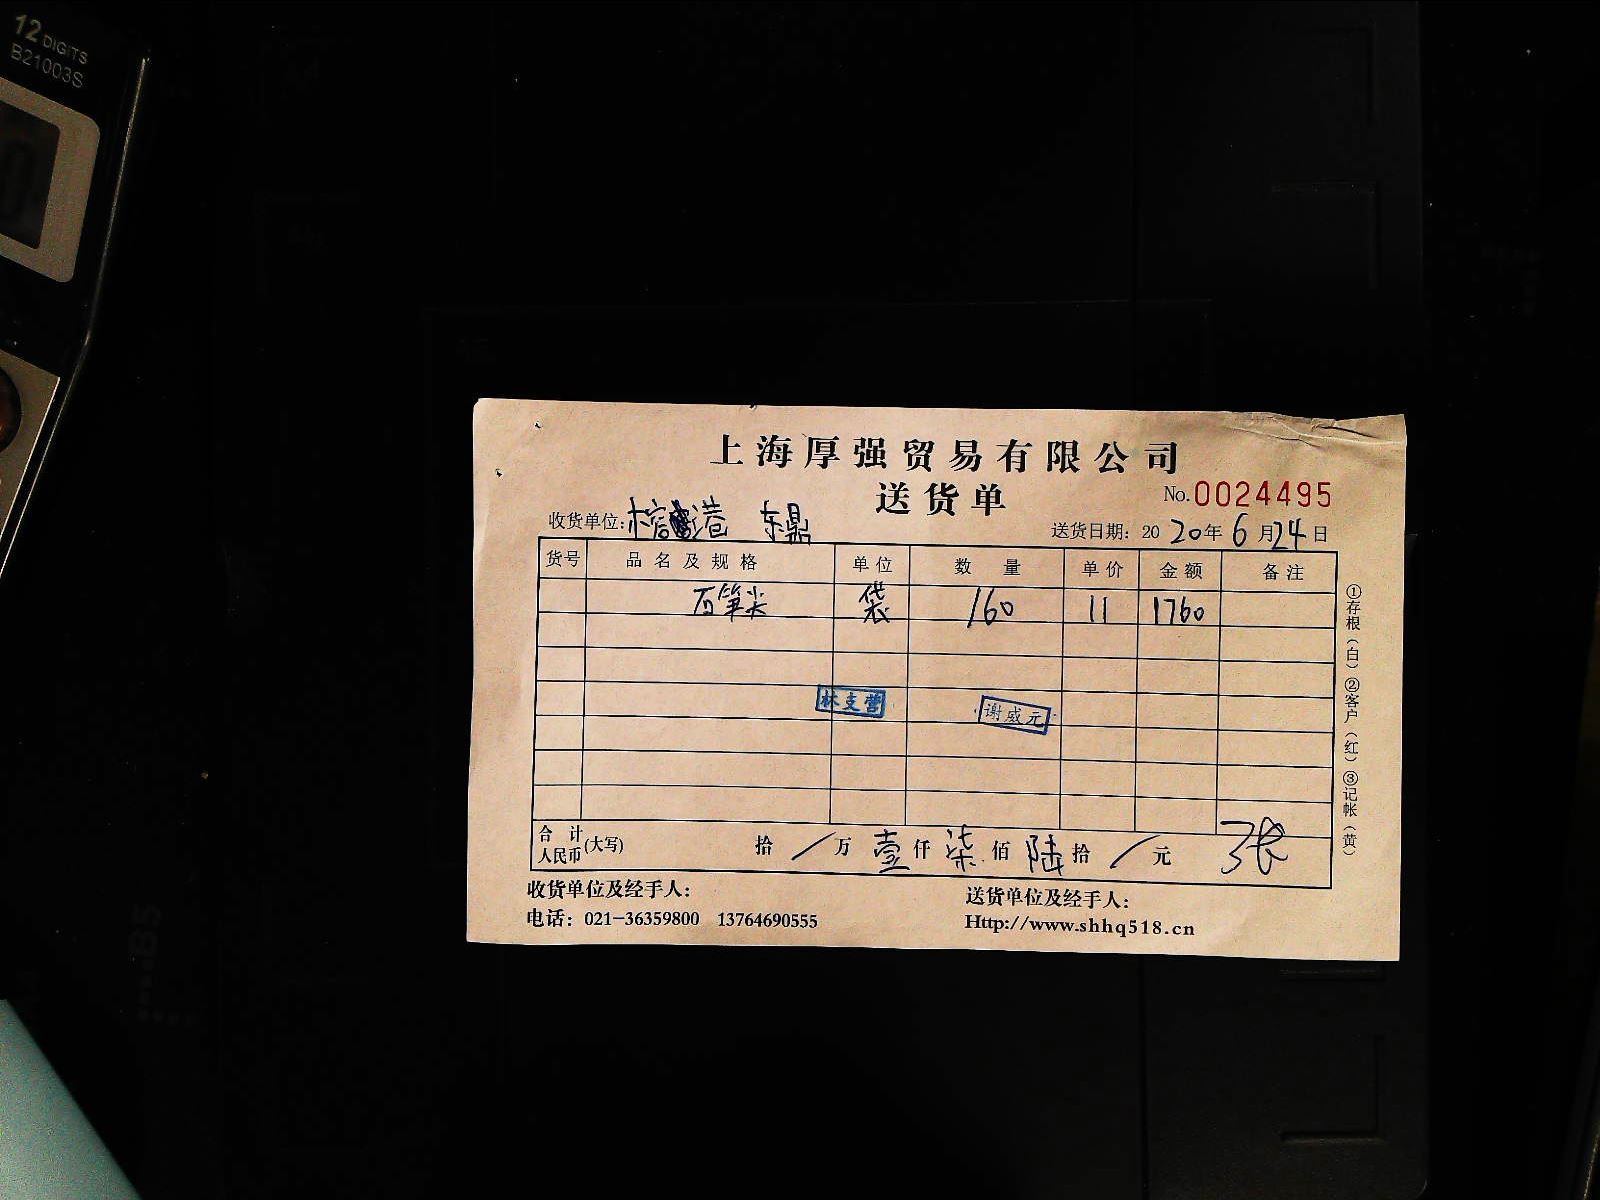 12 DIGITS
B21003S
上海厚强贸易有限公司
送货单
No.0024495
收货单位: 榕港 东鼎
送货日期: 2020年6月24日
货号 品名及规格 单位 数量 单价 金额 备注
石笋尖 袋 160 11 1760
林支营
谢威元
合计人民币(大写) 拾 / 万 壹 仟 柒 佰 陆 拾 / 元 张
收货单位及经手人:
送货单位及经手人:
电话: 021-36359800 13764690555
Http://www.shhq518.cn
①存根(白)②客户(红)③记帐(黄)
B5